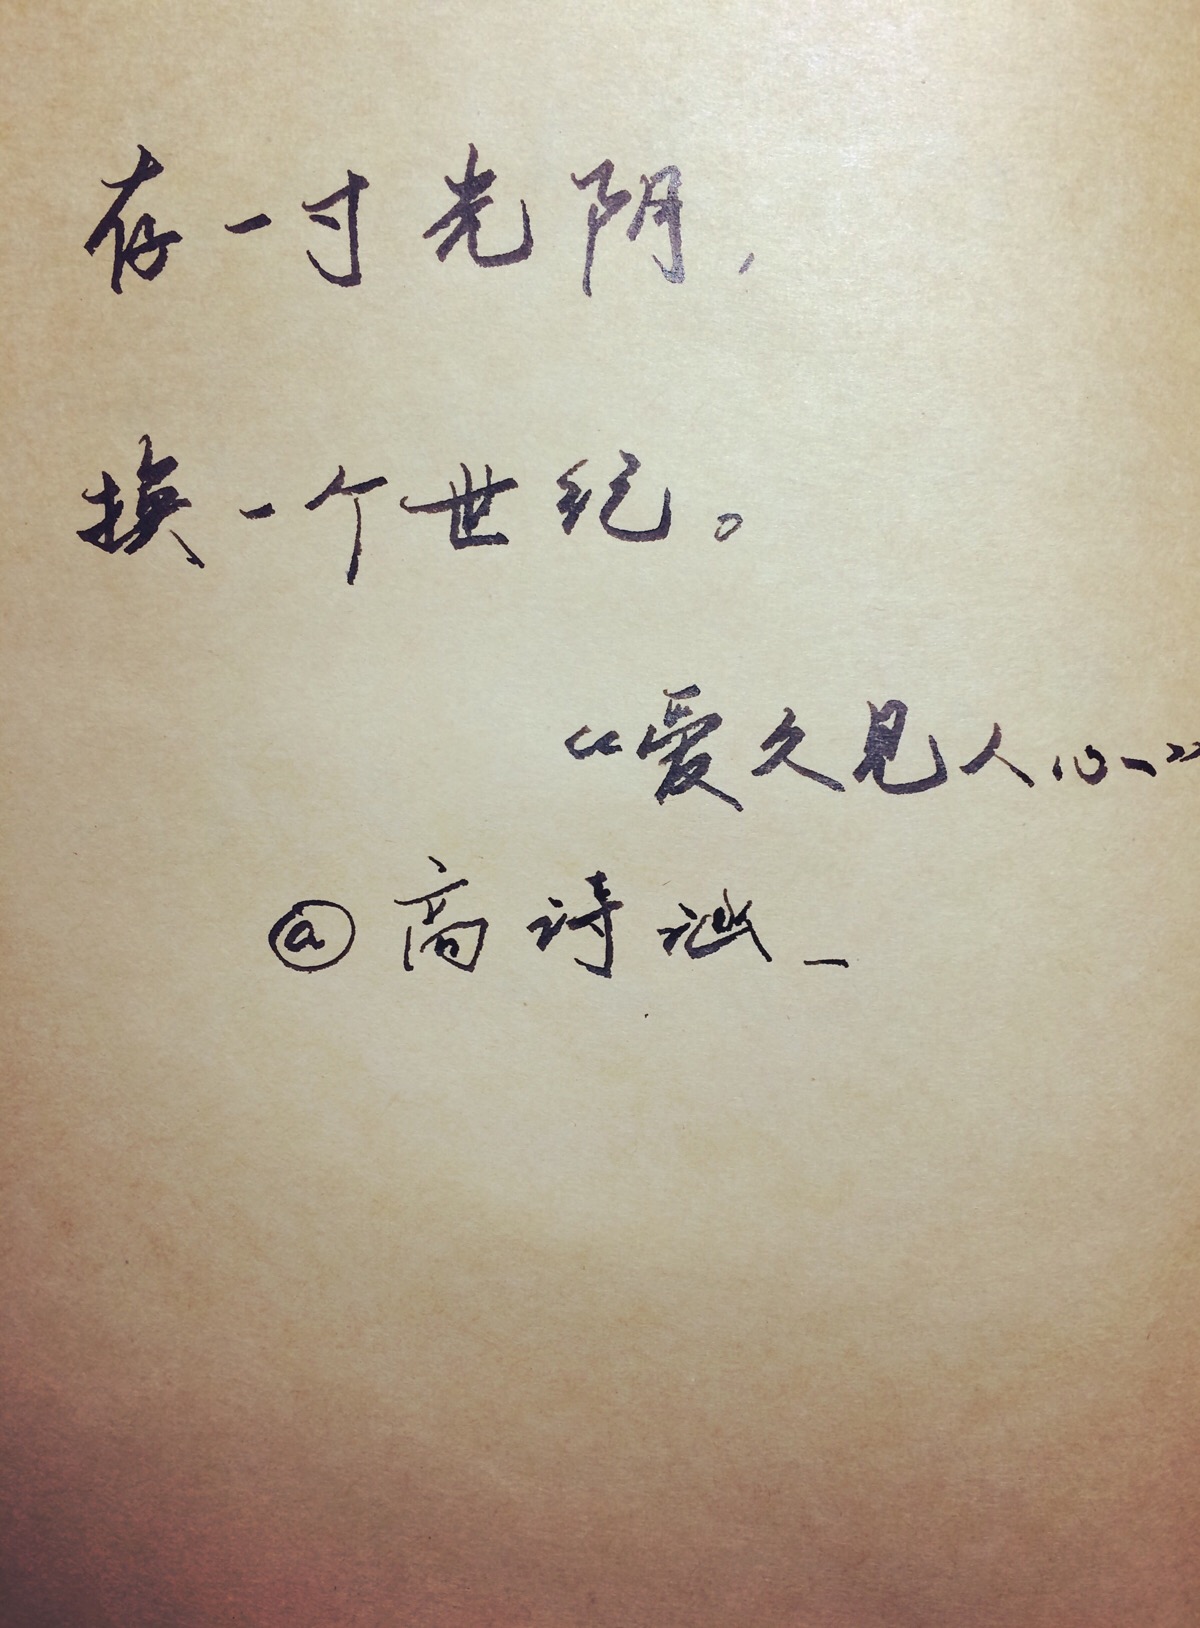 存一寸光阴，
换一个世纪。
“爱久见人心”
@高诗涵_